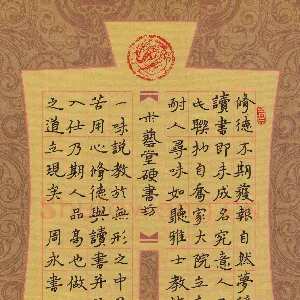 脩德不期獲報自然夢穩
讀書即未成名究竟人
此聯抄自喬家大院立
耐人尋味如聽雅士教
藝堂硬書坊
一味說教於無形之中
苦用心脩德與讀書并
入仕乃期人品高也做
之道立現矣 周永書